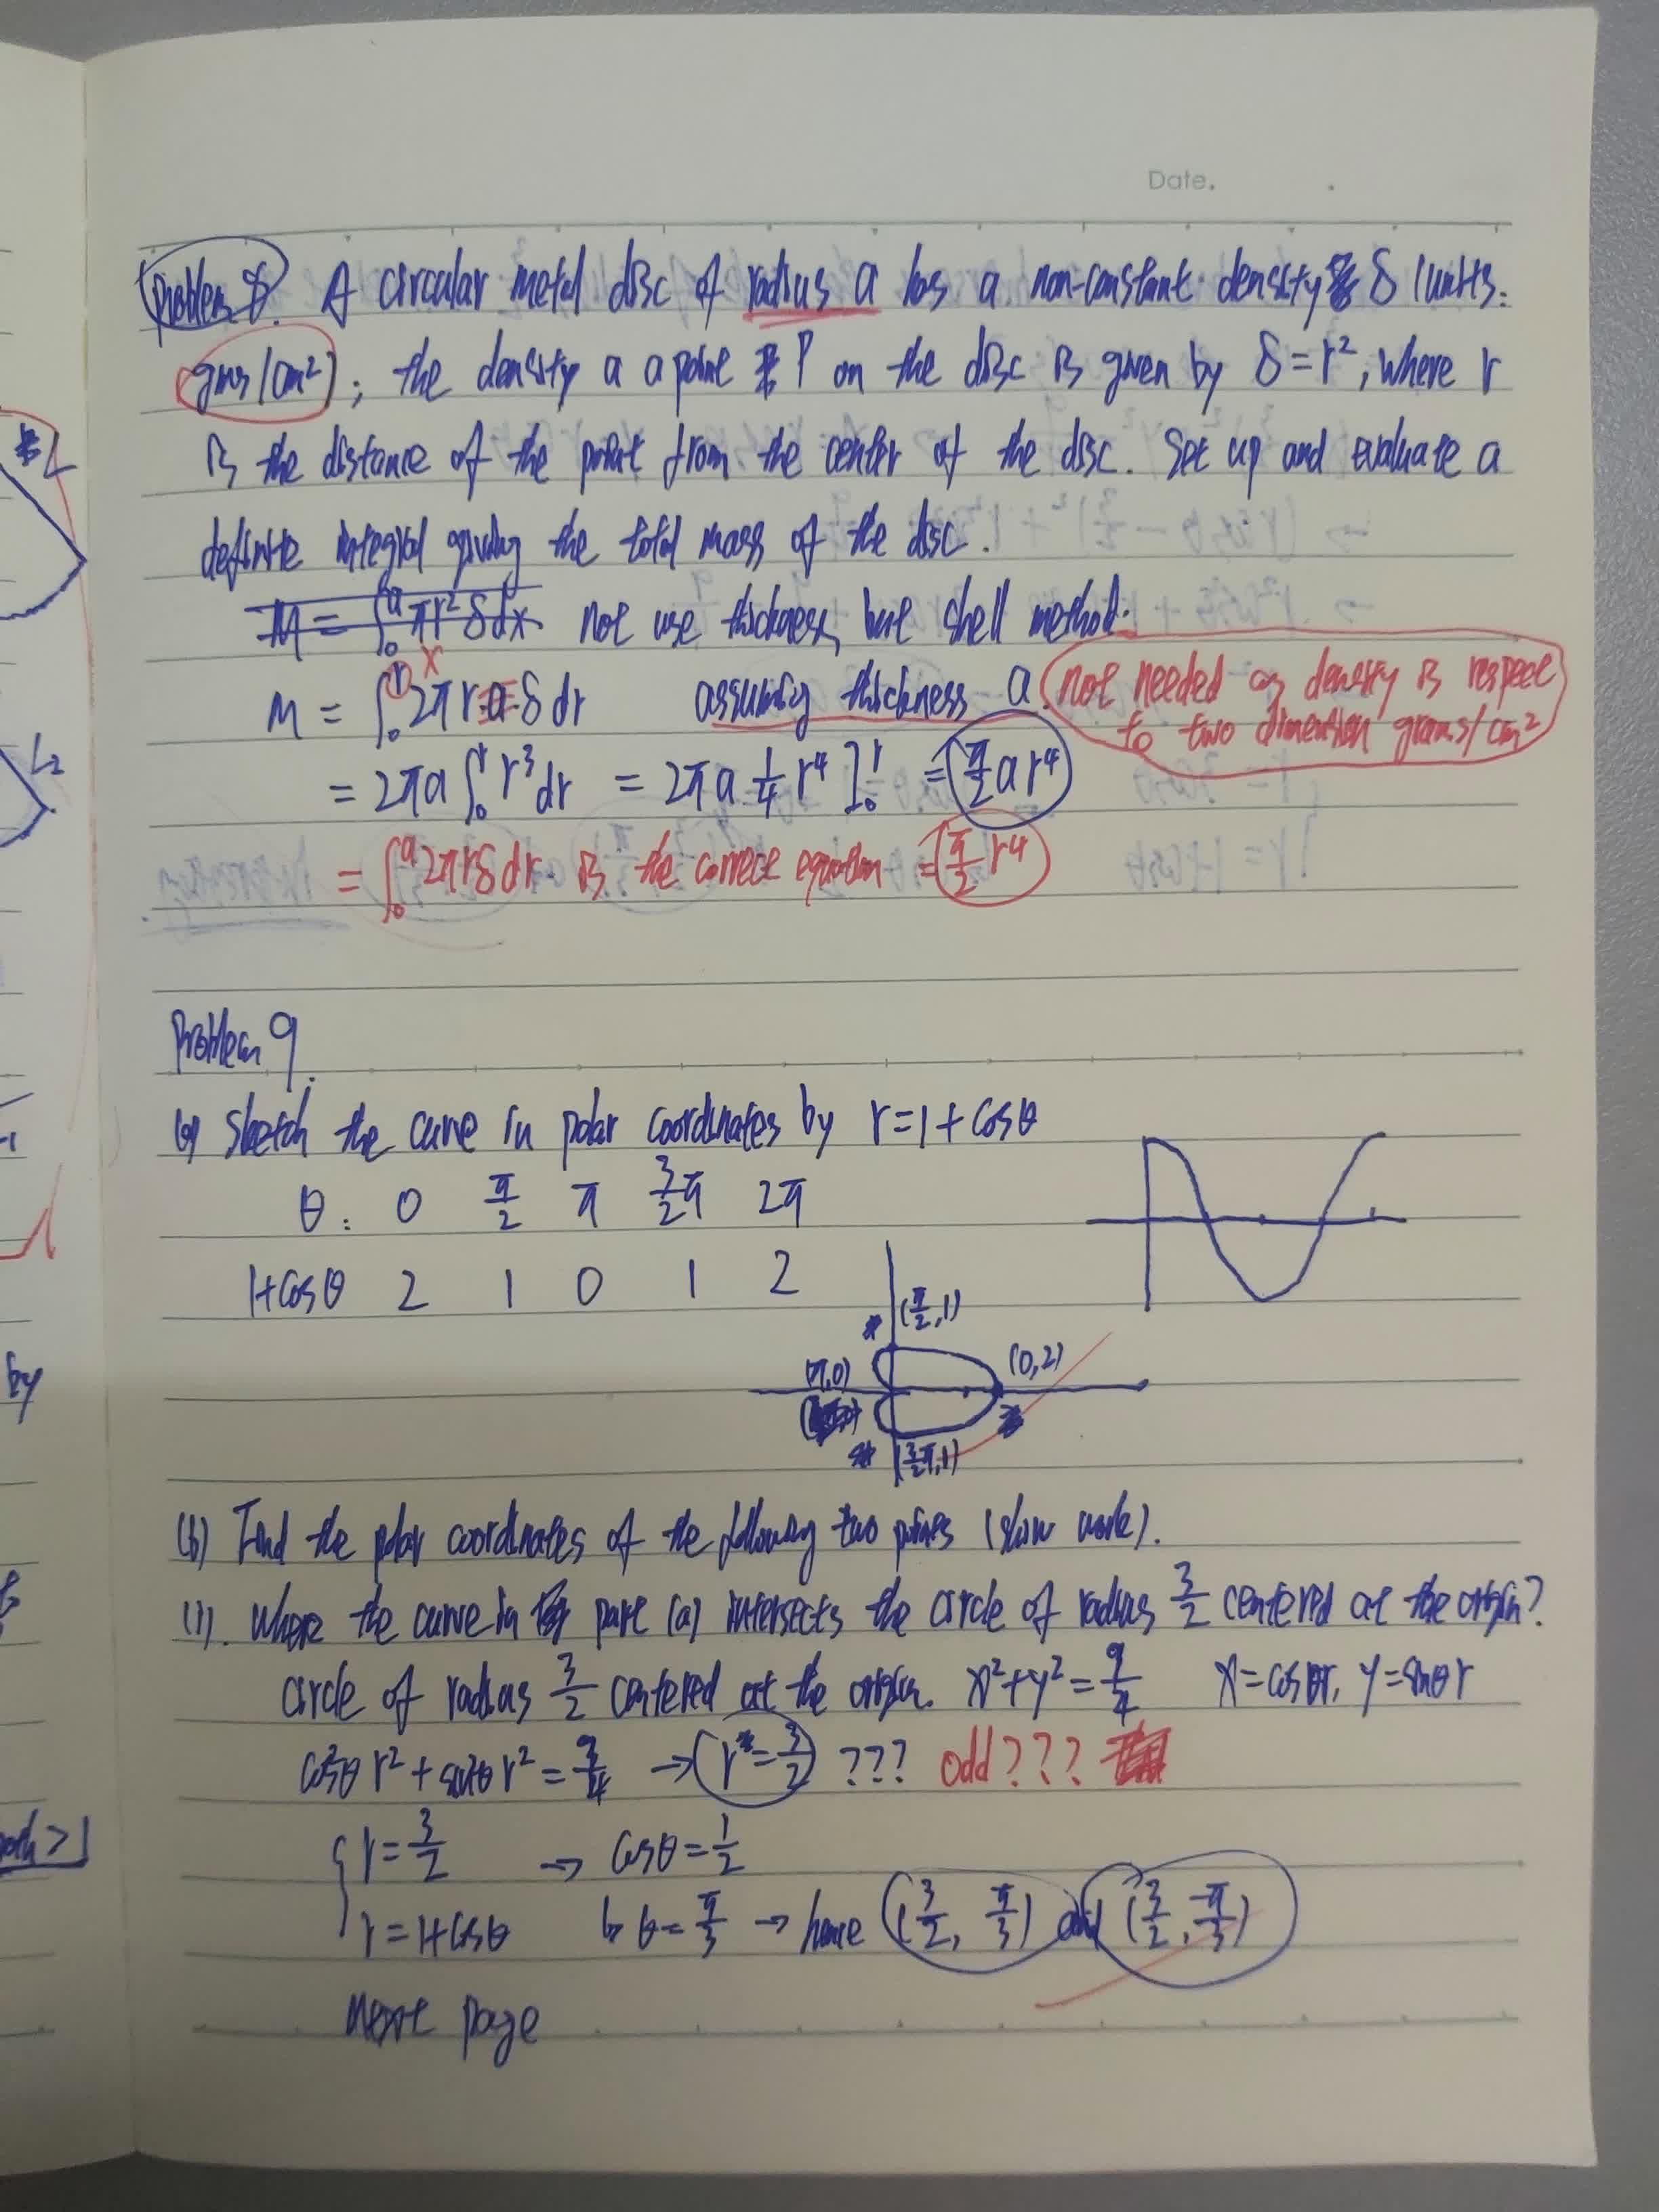 Date.
Problem 8. A circular metal disc of radius a has a non-constant density δ (units:
gms/cm²); the density a a point P on the disc is given by δ=r², where r
is the distance of the point from the center of the disc. Set up and evaluate a
definite integral giving the total mass of the disc.
M = ∫₀ᵃ πr² δ dx not use thickness, but shell method.
M = ∫₀ʳ 2π r·a·δ dr assuming thickness a. not needed as density is respect
to two dimension grams/cm²
= 2πa ∫₀ʳ r³ dr = 2πa ¼ r⁴ ]₀ʳ = π/2 a r⁴
= ∫₀ᵃ 2πrδ dr is the correct equation = π/2 r⁴
Problem 9.
(a) Sketch the curve in polar coordinates by r=1+cosθ
θ: 0 π/2 π 3/2π 2π
1+cosθ 2 1 0 1 2
(π/2, 1)
(π,0) (0,2)
(3/2π,1)
(b) Find the polar coordinates of the following two points (show work).
(i). Where the curve in part (a) intersects the circle of radius 3/2 centered at the origin?
circle of radius 3/2 centered at the origin. x²+y²=9/4 x=cosθr, y=sinθr
cos²θ r² + sin²θ r² = 9/4 → r=3/2 ??? odd???
r=3/2 → cosθ=1/2
r=1+cosθ θ=π/3 → hence (3/2, π/3) and (3/2, -π/3)
Next page